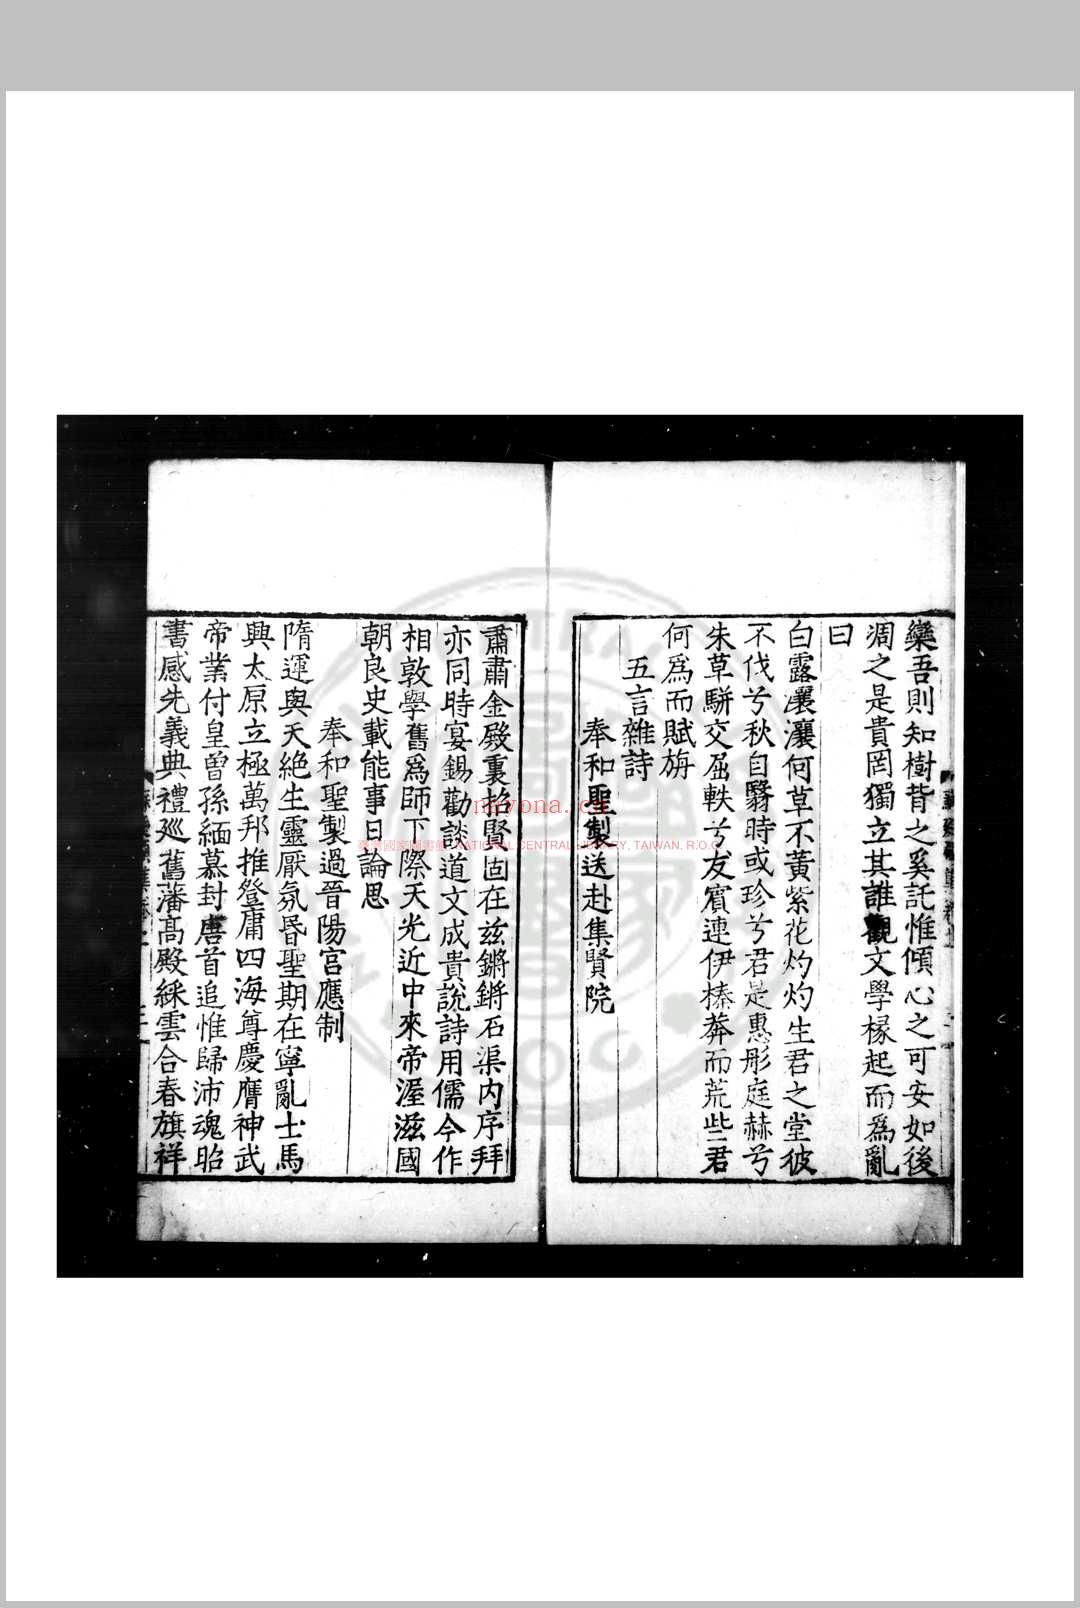 欒吾則知樹背之奚託惟傾心之可安如後
凋之是貴罔獨立其誰觀文學椽起而爲亂
曰
白露瀼瀼何草不黃紫花灼灼生君之堂彼
不伐兮秋自翳時或珍兮君是惠彤庭赫兮
朱草駢交屈軼兮友賓連伊榛莽而荒些君
何爲而賦旃
五言雜詩
奉和聖製送赴集賢院
肅肅金殿裏招賢固在兹鏘鏘石渠内序拜
亦同時宴錫勸談道文成貴說詩用儒今作
相敦學舊爲師下際天光近中來帝渥滋國
朝良史載能事日論思
奉和聖製過晉陽宮應制
隋運與天絶生靈厭氛昏聖期在寧亂士馬
興太原立極萬邦推登庸四海尊慶膺神武
帝業付皇曾孫緬慕封唐首追惟歸沛魂昭
書感先義典禮巡舊藩高殿綵雲合春旗祥
nnyona.cn
臺灣國家圖書館 NATIONAL CENTRAL LIBRARY, TAIWAN, R.O.C